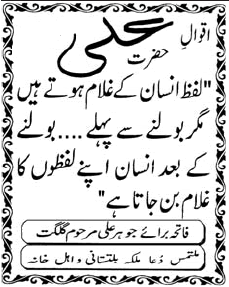 اقوالِ
حضرت علی
"لفظ انسان کے غلام ہوتے ہیں
مگر بولنے سے پہلے ....بولنے
کے بعد انسان اپنے لفظوں کا
غلام بن جاتا ہے"
فاتحہ برائے جوہر علی مرحوم گلگت
ملتمس دُعا ملکہ بلتستانی و اہل خانہ